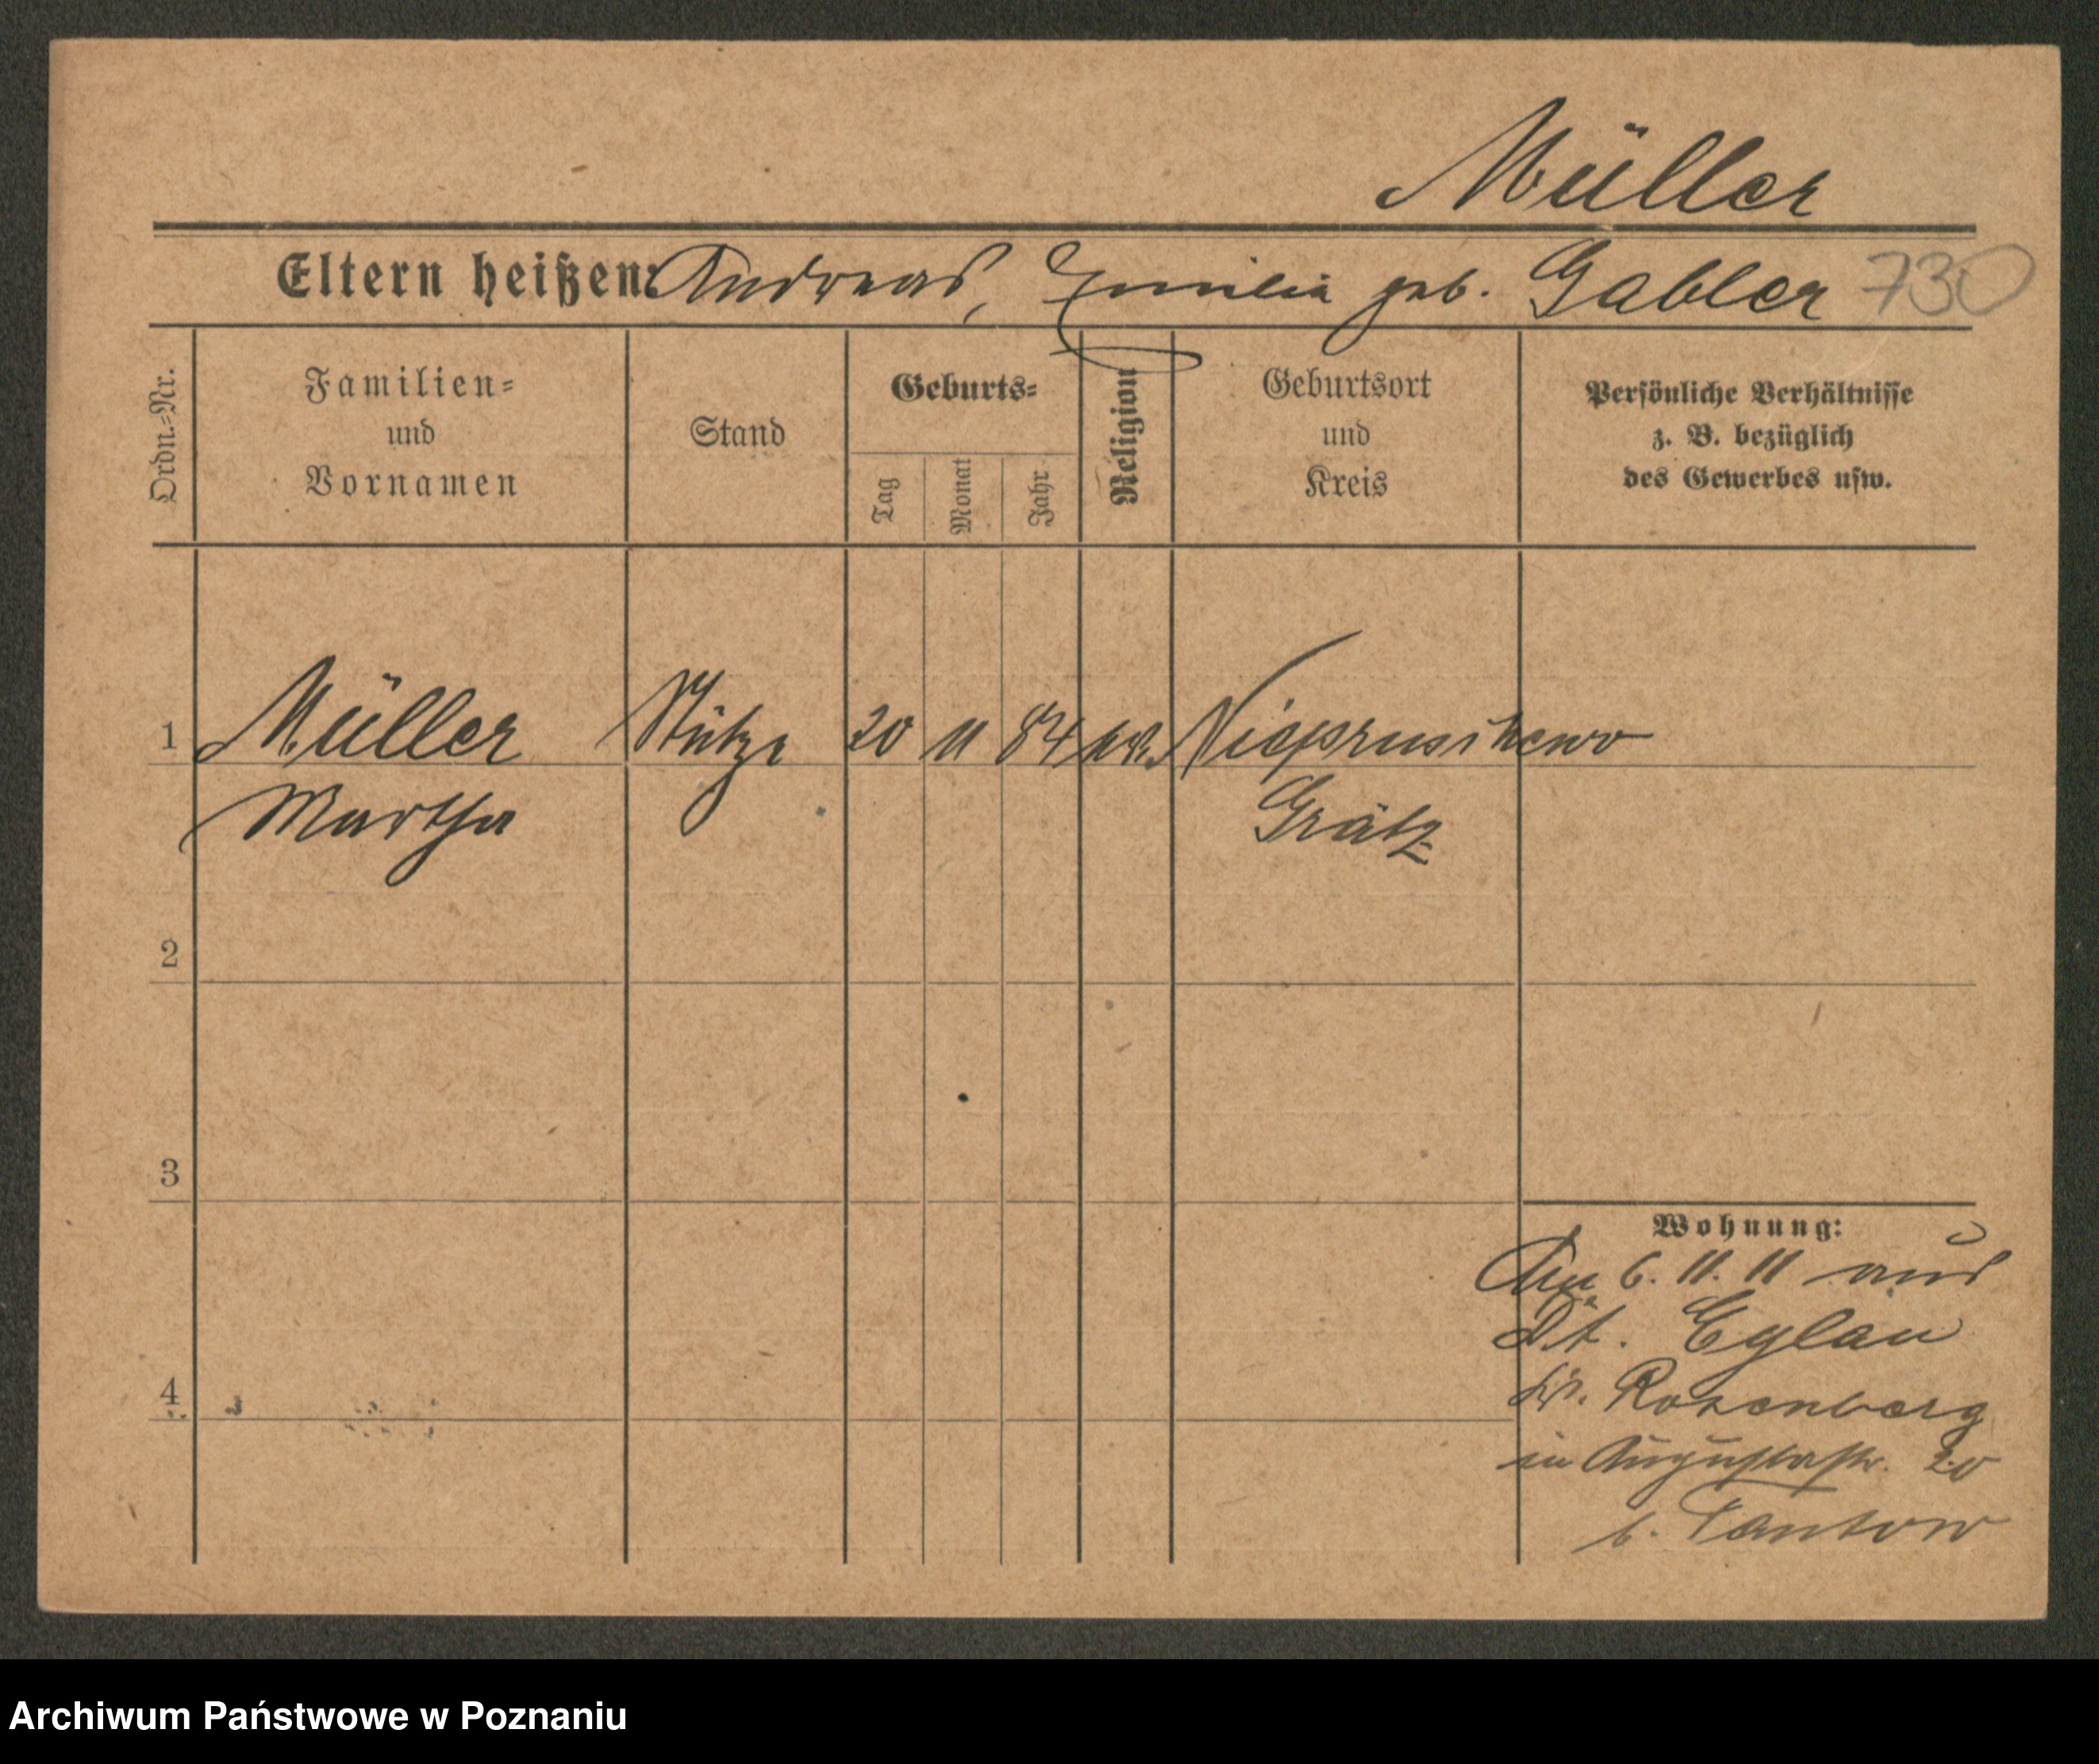 Müller
Eltern heißen: Andreas, Emilia geb. Gabler 730
Ordn.=Nr.
Familien=
und
Vornamen
Stand
Geburts=
Tag
Monat
Jahr
Religion
Geburtsort
und
Kreis
Persönliche Verhältnisse
z. B. bezüglich
des Gewerbes usw.
1 Müller Stütze 20 11 84 Niepruschewo
Martha Grätz
2
3
4
Wohnung:
6. 11. 11 aus
Dt. Eylau
Kr. Rosenberg
in Augustastr. 20
b. Tantow
Archiwum Państwowe w Poznaniu